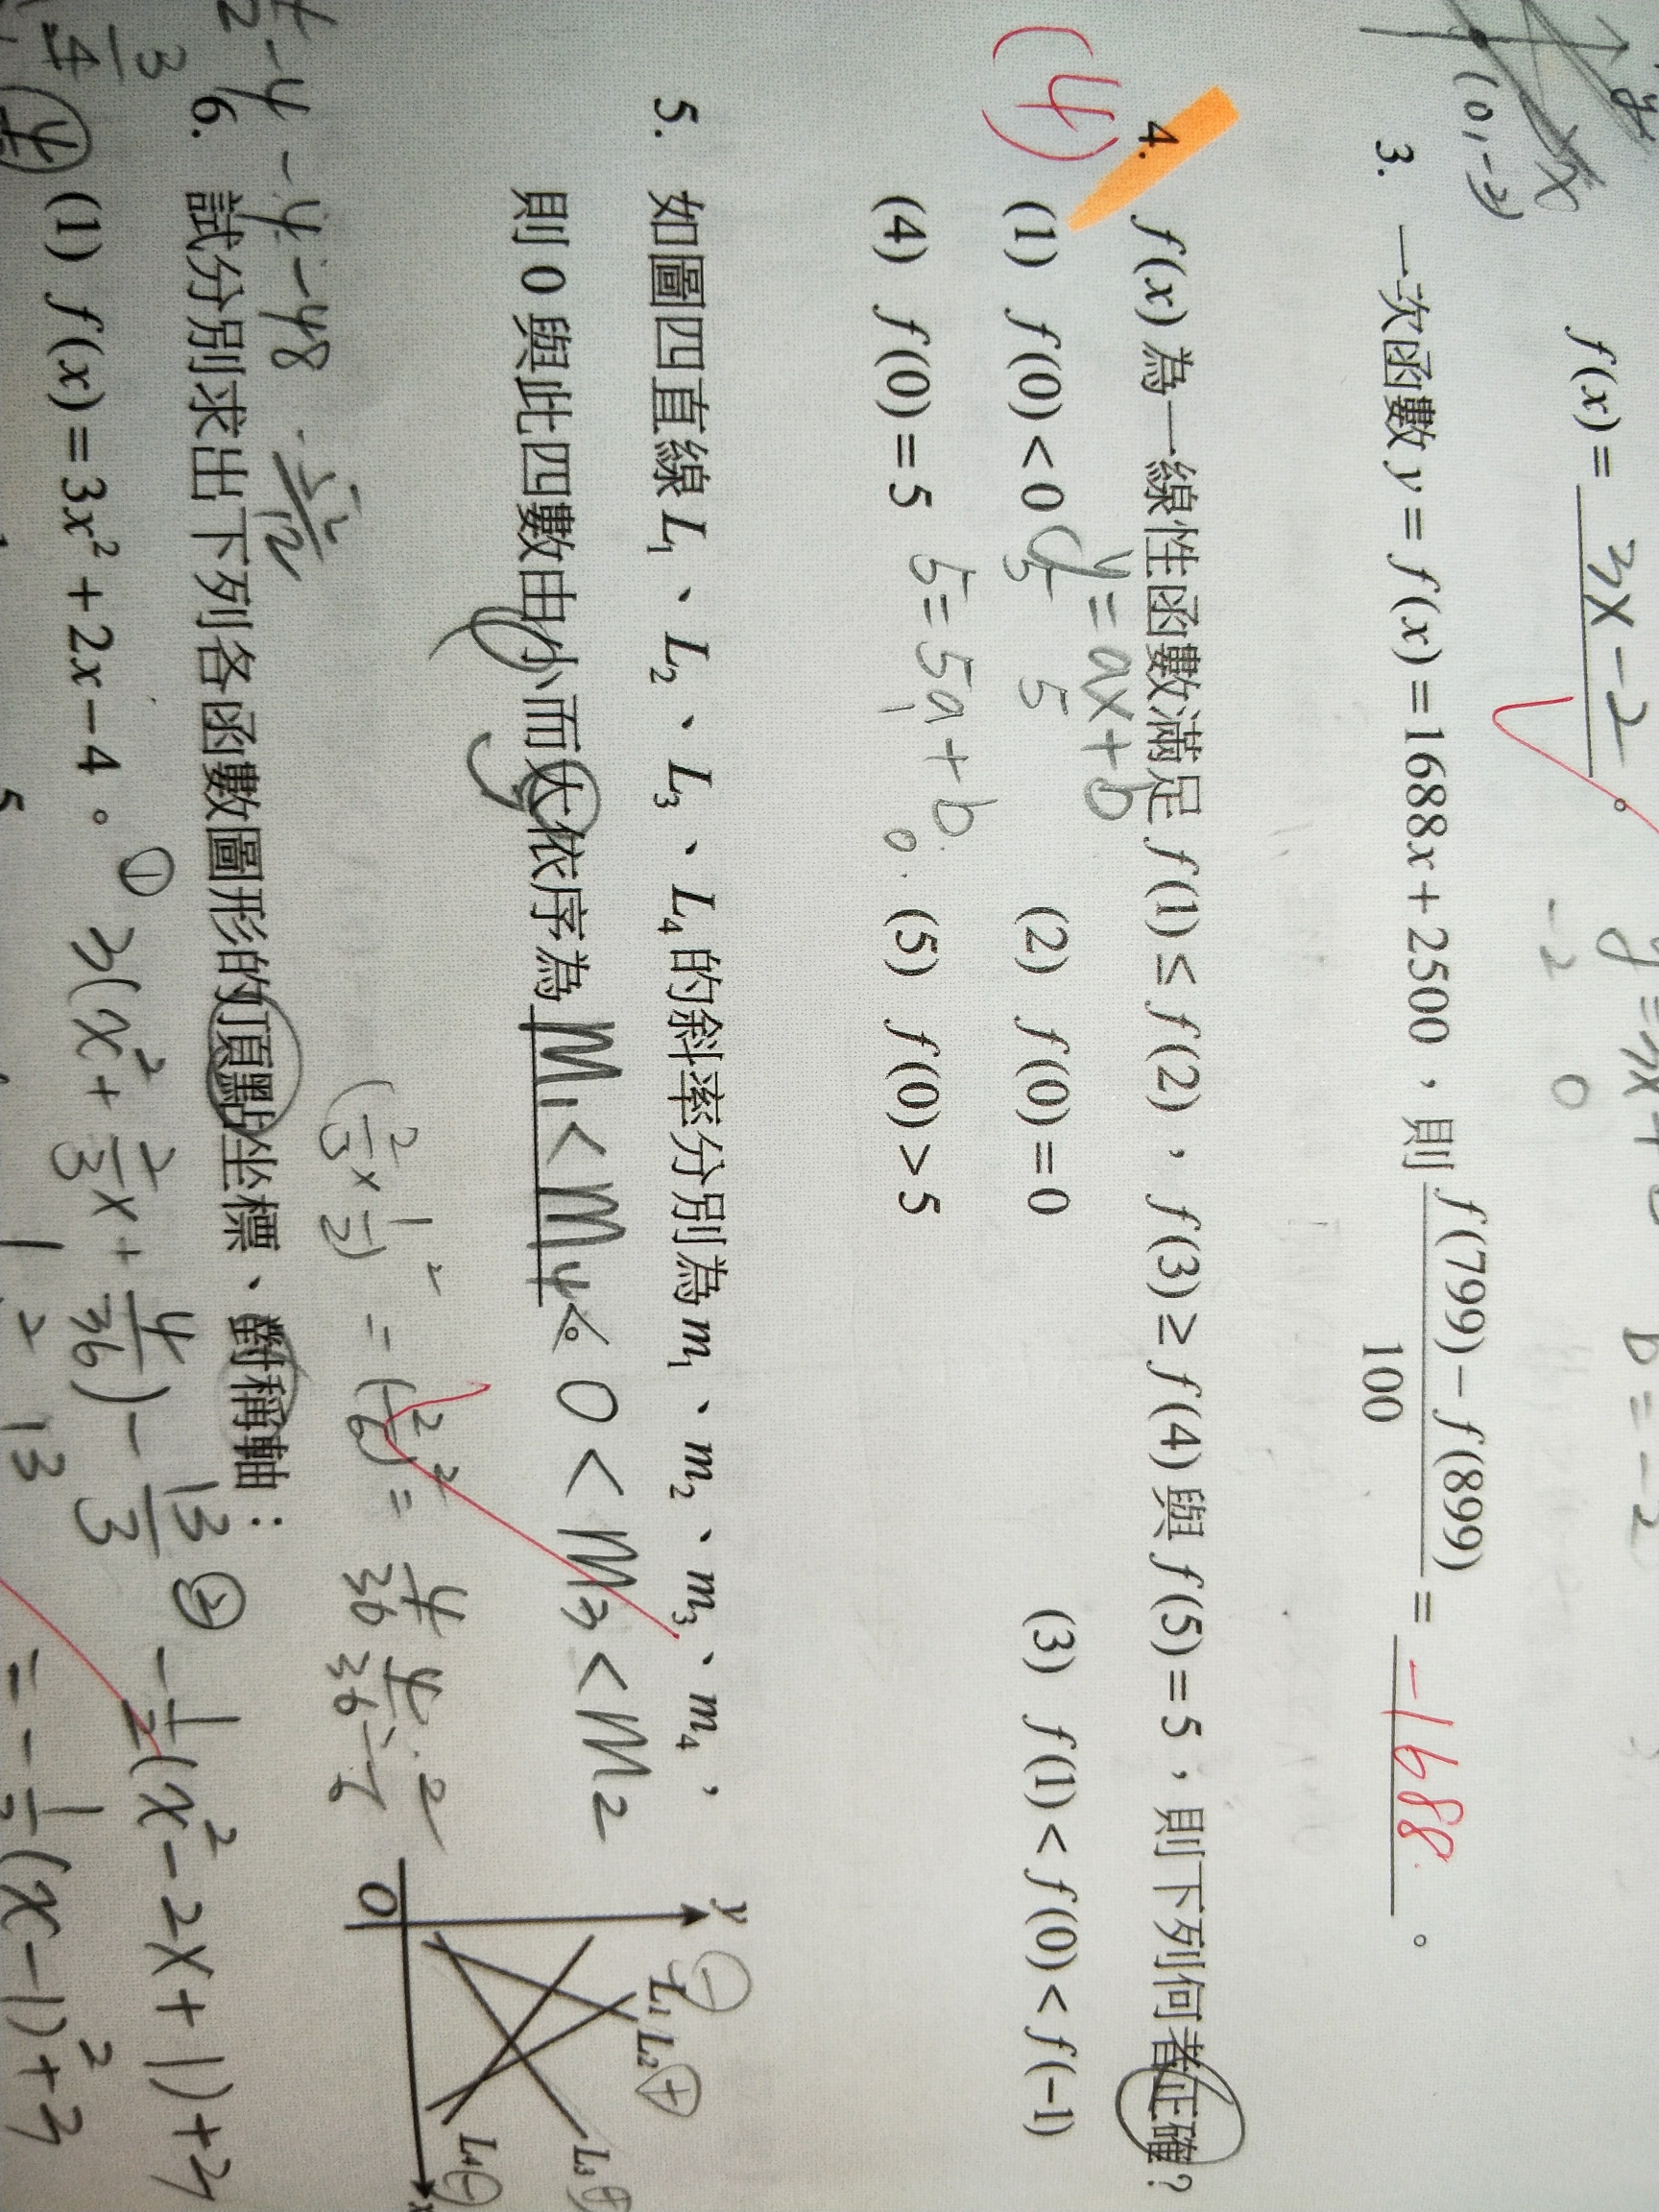 f(x) = 3x-2 。
(0,-2)
3. 一次函數 y = f(x) = 1688x + 2500 ,則 \frac{f(799) - f(899)}{100} = -1688. 。
(4)
4. f(x) 為一線性函數滿足 f(1) ≤ f(2) , f(3) ≥ f(4) 與 f(5) = 5 ,則下列何者正確?
y = ax + b
(1) f(0) < 0 (2) f(0) = 0 (3) f(1) < f(0) < f(-1)
5 5
(4) f(0) = 5 (5) f(0) > 5
5 = 5a + b
5. 如圖四直線 L₁、L₂、L₃、L₄ 的斜率分別為 m₁、m₂、m₃、m₄,
則 0 與此四數由小而大依序為 m₁ < m₄ < 0 < m₃ < m₂ 。
y
L₁ L₂
⊖ ⊕
L₃
L₄
O
(\frac{2}{3} × \frac{1}{2})² = (\frac{2}{6})² = \frac{4}{36}
6. 試分別求出下列各函數圖形的頂點坐標、對稱軸:
(1) f(x) = 3x² + 2x - 4 。
① 3(x² + \frac{2}{3}x + \frac{4}{36}) - \frac{13}{3}
② -\frac{1}{2}(x² - 2x + 1) + 3
= -\frac{1}{2}(x - 1)² + 3